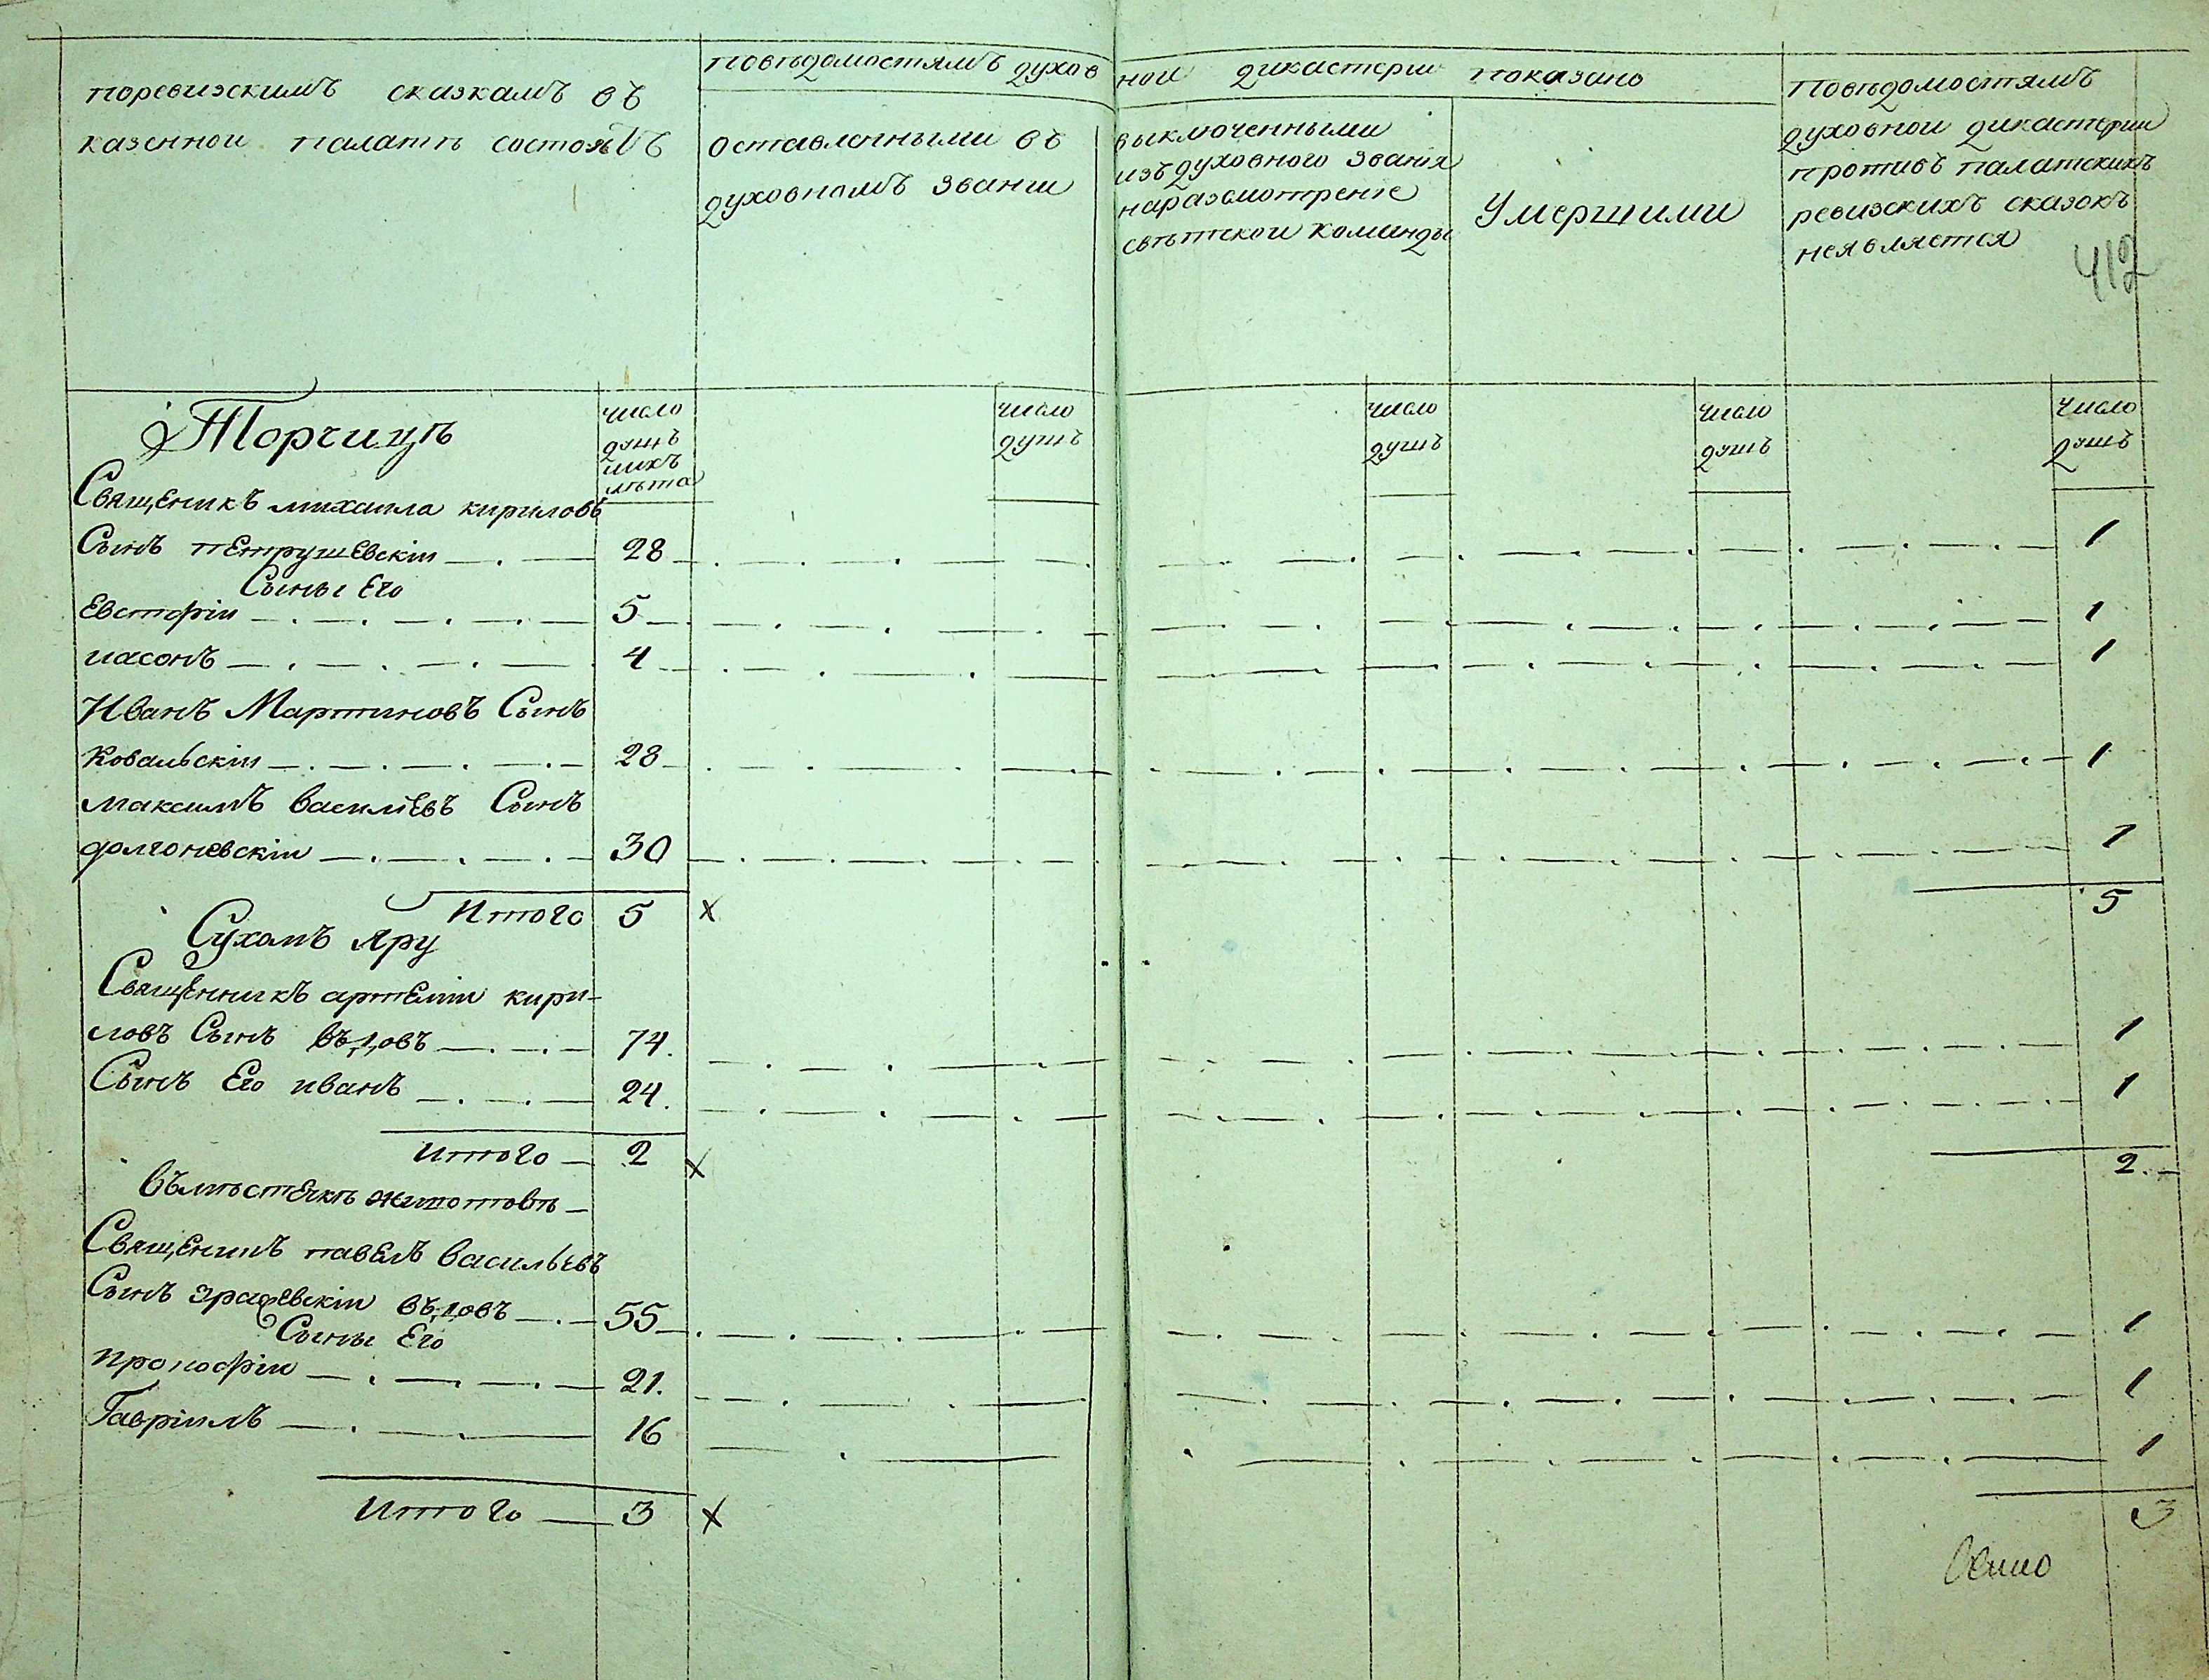 поревизскимъ сказкамъ въ
казенной палатѣ состоятъ
повѣдомостямъ духов
ной дикастерии показано
оставленными въ
духовномъ звании
выключенными
изъ духовного звания
наразсмотрение
свѣтской команды
Умершими
повѣдомостямъ
духовной дикастерии
противъ палатскихъ
ревизскихъ сказокъ
неявляется
412
Торчицѣ
число
душъ
ихъ
лѣта
число
душъ
число
душъ
число
душъ
число
душъ
Священикъ михаила кириловъ
Сынъ пЕтрушЕвскіи 28 1
Сыны Его
Евстафіи 5 1
иасонъ 4 1
Иванъ Мартиновъ Сынъ
Ковальскіи 28 1
максимъ василіЕвъ Сынъ
долгоневскіи 30 1
Итого 5 х 5
Сухомъ яру
СвящЕнникъ артЕміи кири-
ловъ Сынъ 74. 1
Сынъ Его иванъ 24. 1
итого 2 х 2.
вѣмѣстЕчкѣ животовѣ
СвящЕникъ павЕлъ васильевъ
Сынъ 55 1
Сыны Его
прокофіи 21. 1
Гавріилъ 16 1
итого 3 х 3